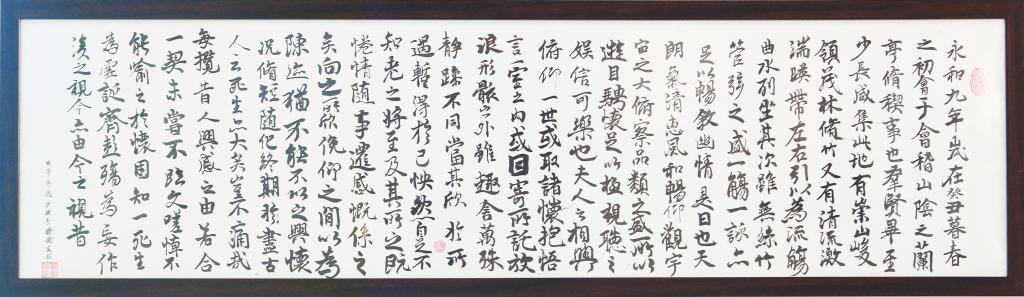 永和九年歲在癸丑暮春
之初會于會稽山陰之蘭
亭脩稧事也羣賢畢至
少長咸集此地有崇山峻
領茂林脩竹又有清流激
湍暎帶左右引以為流觴
曲水列坐其次雖無絲竹
管弦之盛一觴一詠亦
足以暢敘幽情是日也天
朗氣清惠風和暢仰觀宇
宙之大俯察品類之盛所以
遊目騁懷足以極視聽之
娛信可樂也夫人之相與
俯仰一世或取諸懷抱悟
言一室之內或因寄所託放
浪形骸之外雖趣舍萬殊
靜躁不同當其欣於所
遇暫得於己怏然自足不
知老之將至及其所之既
惓情隨事遷感慨係之
矣向之所欣俛仰之間以為
陳迹猶不能不以之興懷
況脩短隨化終期於盡古
人云死生亦大矣豈不痛哉
每攬昔人興感之由若合
一契未嘗不臨文嗟悼不
能喻之於懷固知一死生
為虛誕齊彭殤為妄作
後之視今亦由今之視昔